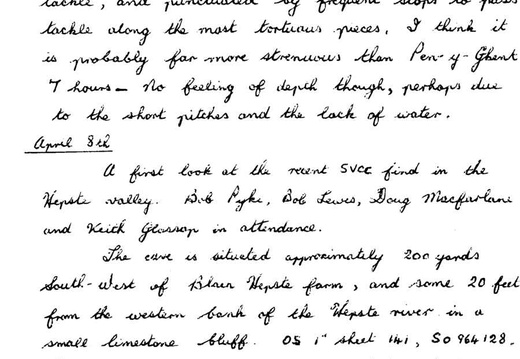 tackle, and punctuated by frequent stops to pass
tackle along the most tortuous pieces. I think it
is probably far more strenuous than Pen-y-Ghent
7 hours - No feeling of depth though, perhaps due
to the short pitches and the lack of water.
April 8th
A first look at the recent SVCC find in the
Hepste valley. Bob Pyke, Bob Lewis, Doug Macfarlane
and Keith Glossop in attendance.
The cave is situated approximately 200 yards
South-West of Blaen Hepste farm, and some 20 feet
from the western bank of the Hepste river in a
small limestone bluff. OS 1" sheet 141, SO 964128.